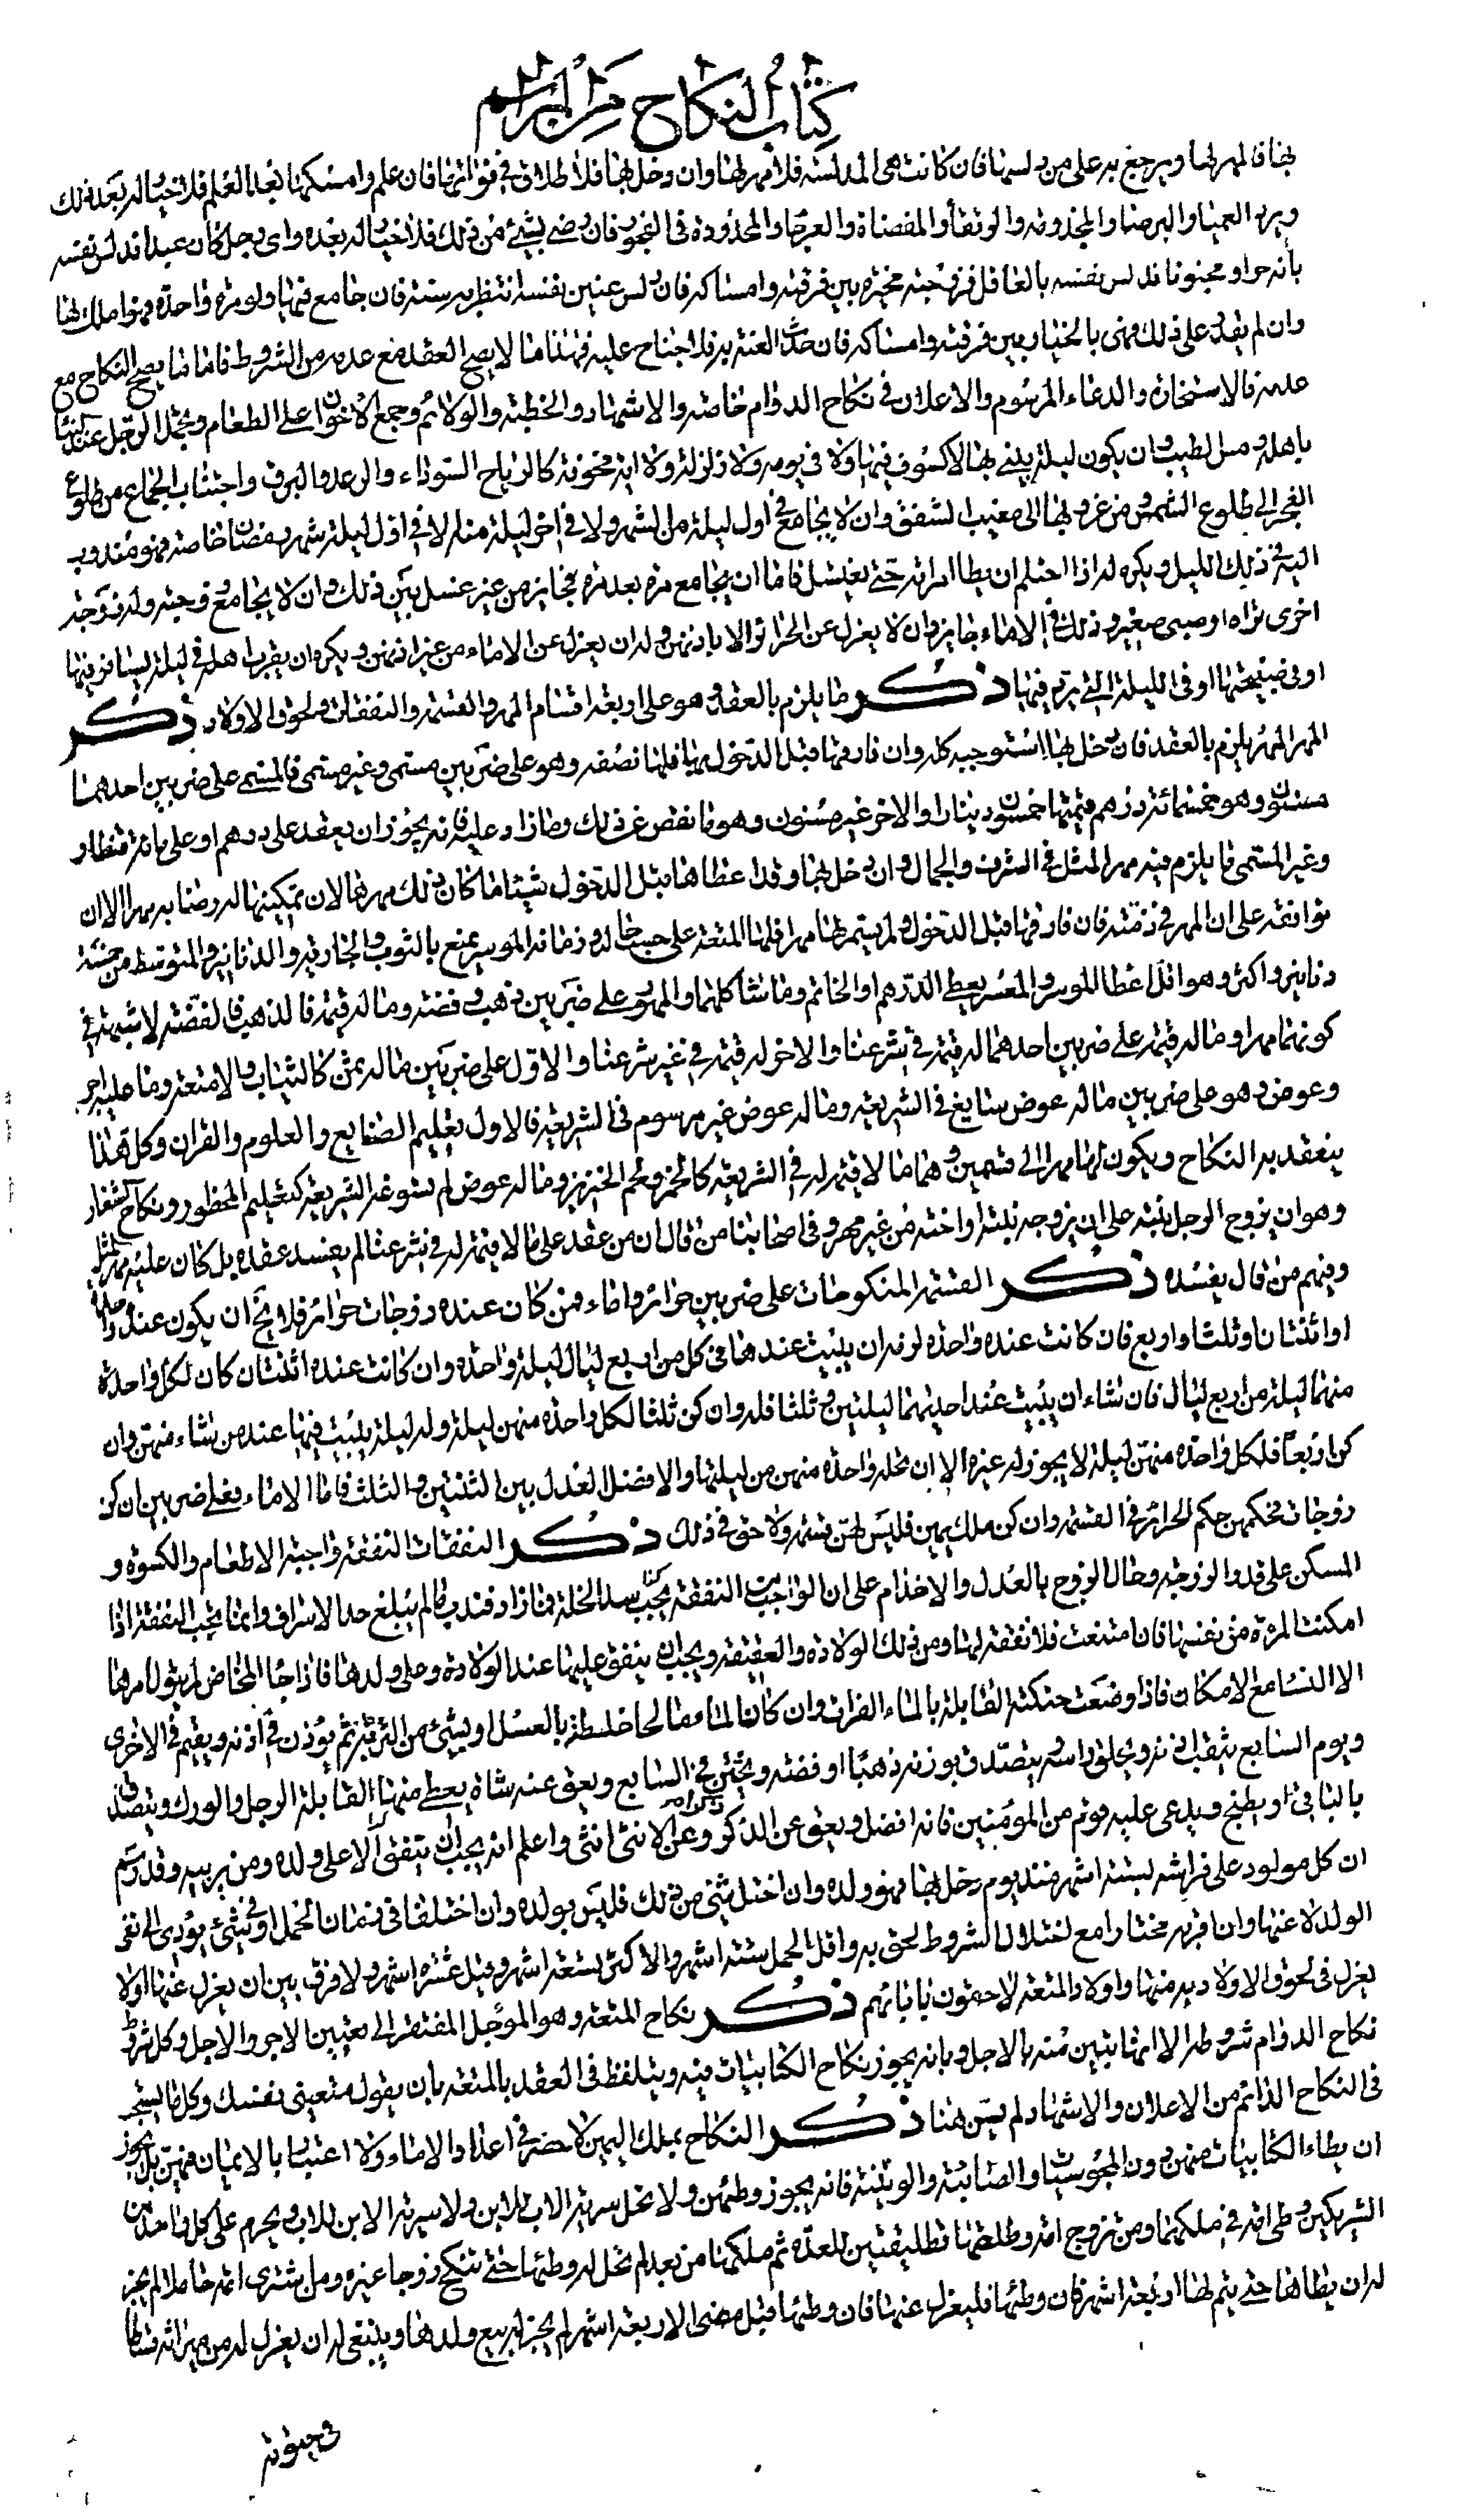 كتاب النكاح من المراسم
بها فالمهر لها ويرجع به على من دلسها فان كانت هي المدلسة فلا مهر لها وان دخل بها فلا طلاق في فراقها فان علم وامسكها بعد العلم فلا خيار له بعد ذلك
ويرد العميا والبرصا والمجذومة والرتقا والمفضاة والعرجا والمحدودة في الفجور فان رضي بشيئ من ذلك فلا خيار له بعده واي رجل كان عبدا فدلس نفسه
بانه حر او مجنونا فدلس نفسه بالعاقل فزوجته مخيرة بين فرقته وامساكه فان دلس عنين نفسه انتظر به سنة فان جامع فيها ولو مرة واحدة فهو املك بها
وان لم يقدر على ذلك فهي بالخيار بين فرقته وامساكه فان حدث العنة به فلا جناح عليه فهذا ما لا يصح العقد مع عدمه من الشروط فاما ما يصح النكاح مع
عدمه فالاستخارة والدعاء المرسوم والاعلان في نكاح الدوام خاصة والاشهاد والخطبة والولائم وجمع الاخوان على الطعام وتجمل الرجل عند
باهله ومس الطيب وان يكون ليلة يبني بها لا كسوف فيها ولا في يومه ولا زلزلة ولا اية مخوفة كالرياح السوداء والرعد والبرق واجتناب الجماع من طلوع
الفجر الى طلوع الشمس ومن غروبها الى مغيب الشفق وان لا يجامع في اول ليلة من الشهر ولا في اخر ليلة منه الا في اول ليلة شهر رمضان خاصة فهو مندوب
اليه في ذلك الليل ويكره له اذا احتلم ان يطا امراته حتى يغتسل فاما ان يجامع مرة بعد مرة فجايز من غير غسل بين ذلك وان لا يجامع زوجته وله زوجة
اخرى تراه او صبي صغير وذلك في الاماء جايز وان لا يعزل عن الحرائر الا باذنهن وله ان يعزل عن الاماء من غير اذنهن ويكره ان يقرب اهله في ليلة يسافر فيها
او في صبيحتها او في الليلة التي يرد فيها ذكر ما يلزم بالعقد وهو على اربعة اقسام المهر والقسمة والنفقات ولحوق الاولاد ذكر
المهر المهر يلزم بالعقد فان دخل بها استوجبه كله وان فارقها قبل الدخول بها فلها نصفه وهو على ضربين مسمى وغير مسمى فالمسمى على ضربين احدهما
مسنون وهو خمسمائة درهم قيمتها خمسون دينارا والاخر غير مسنون وهو ما نقص عن ذلك وما زاد عليه فانه يجوز ان يعقد على درهم او على مائة قنطار
وغير المسمى ما يلزم فيه مهر المثل في الشرف والجمال وان دخل بها وقد اعطاها قبل الدخول شيئا ما كان ذلك مهرها لان تمكينها له رضا به مهرا الا ان
توافقه على ان المهر في ذمته فان فارقها قبل الدخول ولم يسم لها مهرا فلها المتعة على حسب حاله وزمانه الموسر يمتع بالثوب والجارية والدنانير والمتوسط من خمسة
دنانير واكثر وهو اقل عطا للموسر والمعسر يعطي الدرهم او الخاتم وما شاكلهما والمهور على ضربين ذهب وفضة وما له قيمة فالذهب والفضة لا شبهة في
كونهما مهرا وما له قيمة على ضربين احدهما له قيمة في شرعنا والاخر له قيمة في غير شرعنا والاول على ضربين ما له ثمن كالثياب والامتعة وما عليه اجر
وعوض وهو على ضربين ما له عوض سايغ في الشريعة وما له عوض غير مرسوم في الشريعة فالاول تعليم الصنايع والعلوم والقران وكل هذا
ينعقد به النكاح ويكون لها مهرا الى قسمين وهما ما لا قيمة له في الشريعة كالخمر ولحم الخنزير وما له عوض لم تسوغه الشريعة كتعليم المحظور ونكاح الشغار
وهو ان يزوج الرجل بنته على ان يزوجه بنته او اخته من غير مهر وفي اصحابنا من قال ان من عقد على ما لا قيمة له في شرعنا لم يفسد عقده بل كان عليه مهر المثل
ومنهم من قال يفسده ذكر القسمة المنكوحات على ضربين حرائر واماء فمن كان عنده زوجات حرائر فلا يخ ان يكون عنده واحدة
او اثنتان او ثلث او اربع فان كانت عنده واحدة لزمه ان يبيت عندها في كل من اربع ليال ليلة واحدة وان كانت عنده اثنتان كان لكل واحدة
منهما ليلة من اربع ليال فان شاء ان يبيت عند احديهما ليلتين وثلثا فله وان كن ثلثا لكل واحدة منهن ليلة وله ليلة يبيت فيها عند من شاء منهن وان
كن اربعا فلكل واحدة منهن ليلة لا يجوز له غيره الا ان تحله واحدة منهن من ليلتها والافضل العدل بين الثنتين والثلث فاما الاماء فعلى ضربين ان كن
زوجات فحكمهن حكم الحرائر في القسمة وان كن ملك يمين فليس لهن قسمة ولا حق في ذلك ذكر النفقات النفقة واجبة الاطعام والكسوة و
المسكن على قدر الزوجة وحال الزوج بالعدل والاخذام على ان الواجب من النفقة يجب سد الخلة فما زاد فندب ما لم يبلغ حد الاسراف وانما يجب النفقة اذا
امكنت المرءة من نفسها فان امتنعت فلا نفقة لها ومن ذلك الولادة والعقيقة ويجب ان ينفق عليها عند الولادة وعلى ولدها فاذا جا المخاض لم يتول امرها
الا النسا مع الامكان فاذا وضعت حنكته القابلة بالماء الفرات وان كان الما مفا لحا خلطته بالعسل او بشيئ من التربة ثم يؤذن في اذنه ويقيم في الاخرى
ويوم السابع يثقب اذنه ويحلق راسه يتصدق بوزنه ذهبا او فضة ويختن في السابع ويعق عنه شاة يعطى منها القابلة الرجل والورك ويتصدق
بالباقي او يطبخ ويدعى عليه قوم من المؤمنين فانه افضل ويعق عن الذكر وعن الانثى انثى واعلم انه يجب ان ينفق الا على ولده ومن يربيه وقد رسم
ان كل مولود على فراشه لستة اشهر منذ يوم دخل بها فهو ولده وان اختل شئ من ذلك فليس بولده وان اختلفا في زمان الحمل او في شئ يؤدى الى نفى
الولد لاعنها وان اقر به مختارا مع اختلال الشروط لحق به واقل الحمل ستة اشهر والاكثر تسعة اشهر وقيل عشرة اشهر ولا فرق بين ان يعزل عنها او لا
يعزل في لحوق الاولاد به منها واولاد المتعة لاحقون باباﺋهم ذكر نكاح المتعة وهو المؤجل المفتقر الى تعيين الاجر والاجل وكل شروط
نكاح الدوام شروطه الا انها تبين منه بالاجل وبانه يجوز نكاح الكتابيات فيه ويتلفظ في العقد بالمتعة بان يقول متعيني نفسك وكل ما يستحب
في النكاح الدائم من الاعلان والاشهاد لم يسن هنا ذكر النكاح بملك اليمين لا حصر في اعداد الاماء ولا اعتبار بالايمان فيهن بل يجوز
ان يطاء الكتابيات منهن دون المجوسيات والصابئة والوثنية فانه يجوز وطئهن ولا تحل سرية الاب للابن ولا سرية الابن للاب ويحرم على كل واحد من
الشريكين وطى امة في ملكهما ومن تزوج امة وطلقها تطليقتين للعدة ثم ملكها من بعد لم تحل له وطئها حتى تنكح زوجا غيره ومن اشترى امة حاملا لم يجز
له ان يطاها حتى يتم لها اربعة اشهر فان وطئها فليعزل عنها فان وطئها قبل مضى الاربعة اشهر لم يجز له بيع ولدها وينبغى له ان يعزل له من ميراثه قسطا